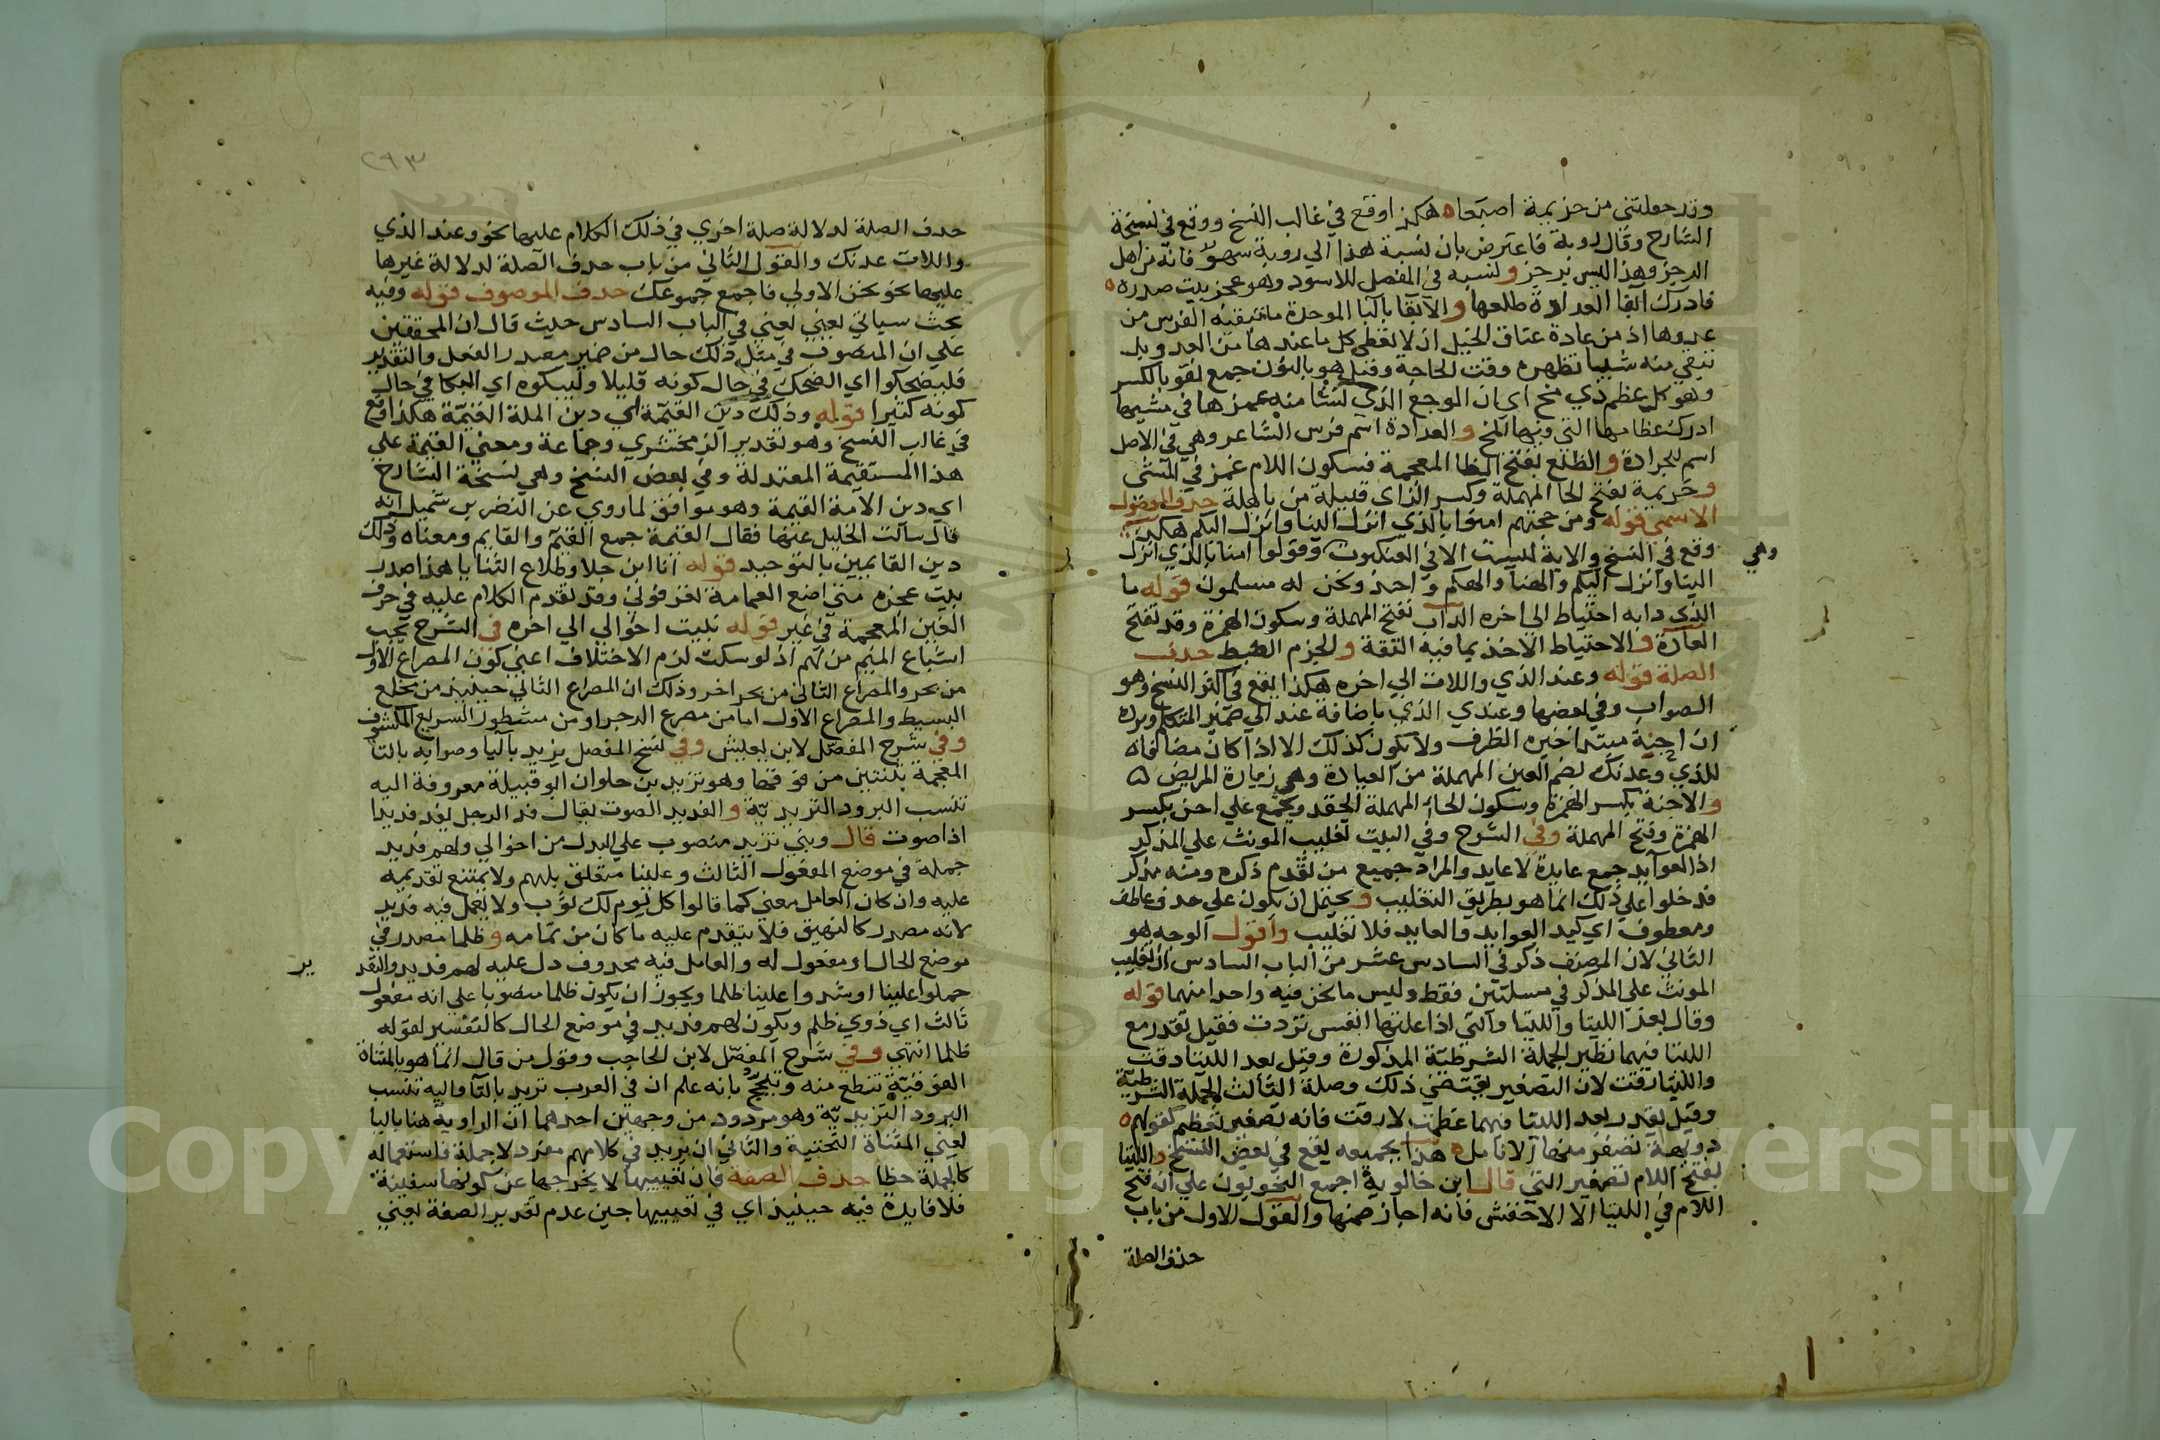 وقد جعلتني من حزيمة اصبعا ه هكذا وقع في غالب النسخ ووقع في نسخة
الشارح وقال روبة فاعترض بان نسبة هذا الي روبة سهو فانه من اهل
الرجز وهذا ليس برجز ونسبه في المفصل للاسود وهو عجز بيت صدره ه
فادرك ابقا العرادة ظلعها والابقا بالبا الموحدة ما تبقيه الفرس من
عدوها اذ من عادة عتاق الخيل ان لا تعطي كل ما عندها من العدو بل
تبقي منه شيا تظهره وقت الحاجة وقيل هو بالنون جمع نقو بالكسر
وهو كل عظم ذي مخ اي ان الوجع الذي نشا منه غمزها في مشيها
ادرك عظامها التي فيها المخ والعرادة اسم فرس الشاعر وهي في الاصل
اسم للجرادة والظلع بفتح الظا المعجمة فسكون اللام غمز في المشي
وحزيمة بفتح الحا المهملة وكسر الزاي قبيلة من باهلة حذف الموصول
الاسمي قوله ومن حجتهم امنوا بالذي انزل الينا وانزل اليكم هكذا
وقع في النسخ والاية ليست الا في العنكبوت وقولوا امنا بالذي انزل
وهي
الينا وانزل اليكم والهنا والهكم واحد ونحن له مسلمون قوله ما
الذي دابه احتياط الى اخره الداب بفتح المهملة وسكون الهمزة وقد تفتح
العادة والاحتياط الاخذ بما فيه الثقة والحزم الضبط حذف
الصلة قوله وعند الذي واللات الي اخره هكذا يقع في اكثر النسخ وهو
الصواب وفي بعضها وعندي الذي باضافة عند الي ضمير المتكلم ويرده
ان احنة مبتدا خبره الظرف ولا يكون كذلك الا اذا كان مضافا
للذي وعدنك بضم العين المهملة من العيادة وهي زيارة المريض ه
والاحنة بكسر الهمزة وسكون الحا المهملة الحقد ويجمع علي احن بكسر
الهمزة وفتح المهملة وفي الشرح وفي البيت تغليب المونث علي المذكر
اذ العوايد جمع عايدة لا عايد والمراد جميع من تقدم ذكره ومنه مذكر
فدخلوا علي ذلك انما هو بطريق التغليب ويحتمل ان يكون علي حذف عاطف
ومعطوف اي كيد العوايد والعايد فلا تغليب واقول الوجه هو
الثاني لان المصنف ذكر في السادس عشر من الباب السادس ان تغليب
المونث علي المذكر في مسلتين فقط وليس ما نحن فيه واحدا منهما قوله
وقال بعد اللتيا واللتيا والتي اذا علتها انفس تردت فقيل تقدر مع
اللتيا فيهما نظير الجملة الشرطية المذكورة وقيل بعد اللتيا دقت
واللتيا دقت لان التصغير يقتضي ذلك وصلة الثالث الجملة الشرطية
وقيل يقدر بعد اللتيا فيهما عظمت لا دقت فانه تصغير تعظيم كقولهم ه
دويهية تصفر منها الانامل ه هذا بجميعه يقع في بعض النسخ واللتيا
بفتح اللام تصغير التي قال ابن خالويه اجمع النحويون علي ان فتح
اللام في اللتيا الا الاخفش فانه اجاز ضمها والقول الاول من باب
حذف الصلة
٢٩٣
حذف الصلة لدلالة صلة اخري في ذلك الكلام عليها نحو وعند الذي
واللات عدنك والقول الثاني من باب حذف الصلة لدلالة غيرها
عليها نحو نحن الاولي فاجمع جموعك حذف الموصوف قوله وفيه
بحث سياتي يعني في الباب السادس حيث قال ان المحققين
علي ان المنصوب في مثل ذلك حال من ضمير مصدر الفعل والتقدير
فليضحكوا اي الضحك في حال كونه قليلا وليبكوه اي البكا في حال
كونه كثيرا قوله وذلك دين القيمة اي دين الملة القيمة هكذا وقع
في غالب النسخ وهو تقدير الزمخشري وجماعة ومعني القيمة علي
هذا المستقيمة المعتدلة وفي بعض النسخ وهي نسخة الشارح
اي دين الامة القيمة وهو موافق لما روي عن النضر بن شميل انه
قال سالت الخليل عنها فقال القيمة جمع القيم والقايم ومعناه وذلك
دين القايمين بالتوحيد قوله انا ابن جلا وطلاع الثنايا هذا صدر
بيت عجزه متي اضع العمامة تعرفوني وقد تقدم الكلام عليه في حرف
الغين المعجمة في غير قوله نبيت اخوالي الي اخره في الشرح يجب
اشباع الميم من لهم اذ لو سكت لزم الاختلاف اعني كون المصراع الاول
من بحر والمصراع الثاني من بحر اخر وذلك ان المصراع الثاني حينيذ من مخلع
البسيط والمصراع الاول اما من مصرع الرجز او من مشطور السريع المكشوف
وفي شرح المفصل لابن يعيش وفي نسخ المفصل يزيد باليا وصوابه بالتا
المعجمة بثنتين من فوقها وهو تزيد بن حلوان ابو قبيلة معروفة اليه
تنسب البرود التزيدية والفديد الصوت يقال فد الرجل يفد فديدا
اذا صوت قال وبني تزيد منصوب علي البدل من اخوالي ولهم فديد
جملة في موضع المفعول الثالث وعلينا متعلق بلهم ولا يمتنع تقديمه
عليه وان كان العامل معني كما قالوا كل يوم لك ثوب ولا يعمل فيه فديد
لانه مصدر كالنهيق فلا يتقدم عليه ما كان من تمامه وظلما مصدر في
موضع الحال او مفعول له والعامل فيه محذوف دل عليه لهم فديد والتقد
ير
حملوا علينا او شدوا علينا ظلما ويجوز ان يكون ظلما منصوبا علي انه مفعول
ثالث اي ذوي ظلم ويكون لهم فديد في موضع الحال كالتفسير لقوله
ظلما انتهي وفي شرح المفصل لابن الحاجب وقول من قال انما هو بالمثناة
الفوقية تنطع منه وتبجح بانه علم ان في العرب تزيد بالتا واليه تنسب
البرود التزيدية وهو مردود من وجهين احدهما ان الرواية هنا باليا
يعني المثناة التحتية والثاني ان يزيد في كلامهم مفرد لا جملة فاستعماله
كالجملة خطا حذف الصفة فان تعييبها لا يخرجها عن كونها سفينة
فلا فايدة فيه حينيذ اي في تعييبها حين عدم تقدير الصفة يعني